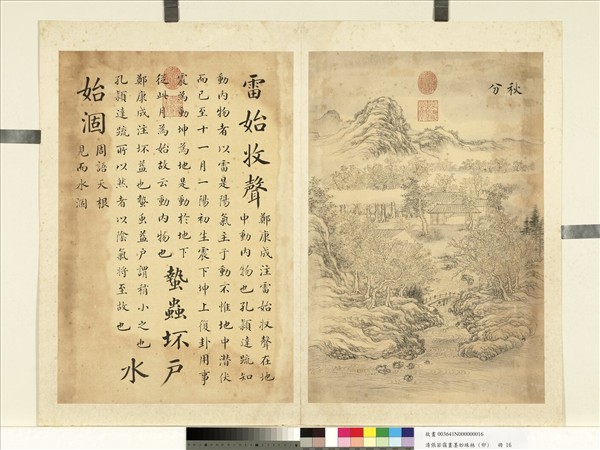 秋分
雷始收聲
鄭康成注雷始收聲在地
中動內物也孔穎達疏知
動內物者以雷是陽氣主于動不惟地中潛伏
而已至十一月一陽初生震下坤上復卦用事
震為動坤為地是動於地下
從此月為始故云動內物也
蟄蟲坏戶
鄭康成注坏益也蟄虫益戶謂稍小之也
孔穎達疏所以然者以陰氣將至故也
水
始涸
周語天根
見而水涸
故畫 003641N000000016
清張若靄畫墨妙珠林（申） 冊 16